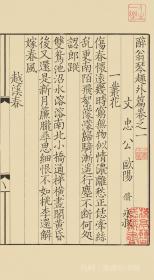 醉翁琴趣外篇卷之一
文忠公歐陽脩永叔
一叢花
傷春懷遠幾時窮無物似情濃離愁正恁牽絲
亂更南陌飛絮濛濛歸騎漸遙征塵不斷何處
認郎蹤
雙鴛池沼水溶溶南北小橋通梯橫畫閣黃昏
後又還是新月簾朧尋思細恨不如桃李還解
嫁春風
越溪春